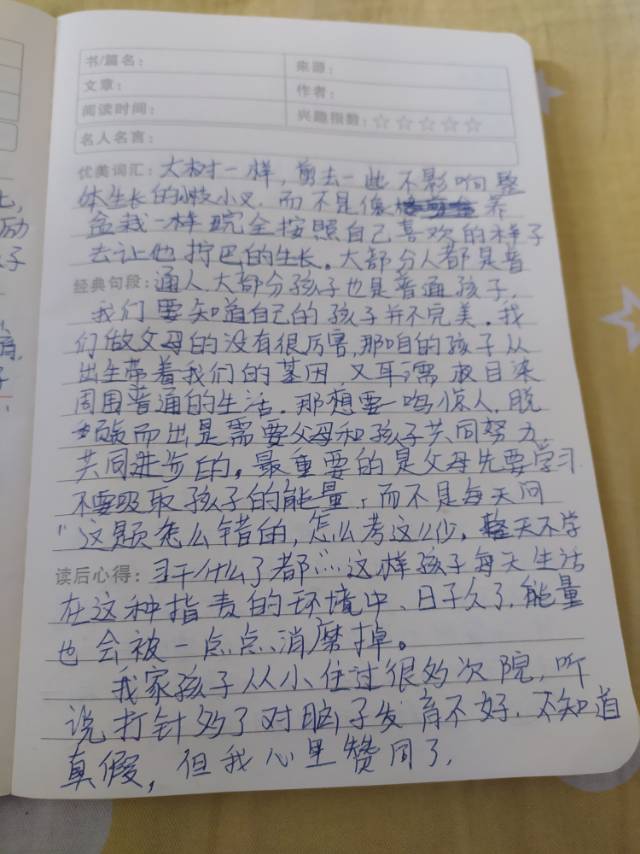 书/篇名：
来源：
文章：
作者：
阅读时间：
兴趣指数：☆☆☆☆☆
名人名言：
优美词汇：大树一样，剪去一些不影响整
体生长的小枝小叉，而不是像养
盆栽一样完全按照自己喜欢的样子
去让他拧巴的生长。大部分人都是普
经典句段：通人大部分孩子也是普通孩子，
我们要知道自己的孩子并不完美。我
们做父母的没有很厉害，那咱的孩子从
出生带着我们的基因又耳濡目染
周围普通的生活。那想要一鸣惊人，脱
颖而出是需要父母和孩子共同努力，
共同进步的。最重要的是父母先要学习
不要吸取孩子的能量，而不是每天问
"这题怎么错的，怎么考这么少，整天不学
读后心得：习干什么了都……这样孩子每天生活
在这种指责的环境中、日子久了，能量
也会被一点点消磨掉。
我家孩子从小住过很多次院，听
说打针多了对脑子发育不好，不知道
真假，但我心里赞同了，